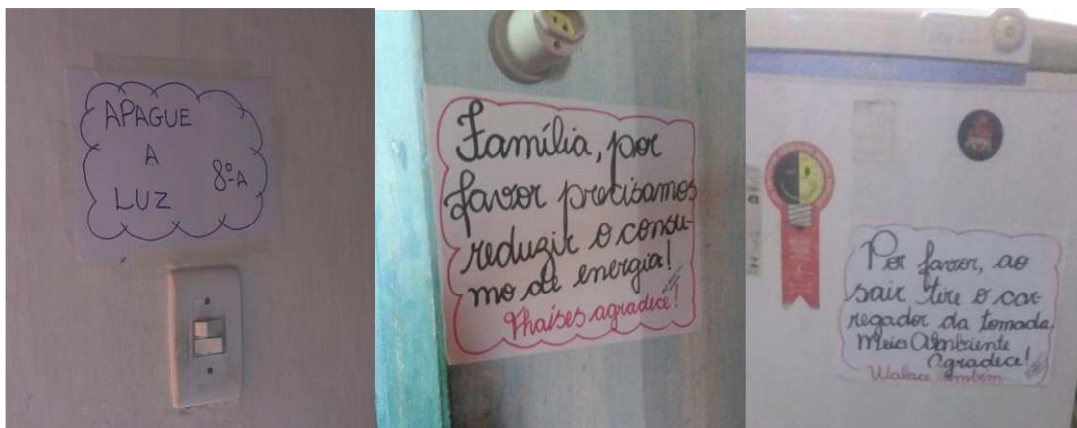 APAGUE
A
LUZ 8º-A
Família, por
favor precisamos
reduzir o consu-
mo de energia!
Thaíses agradece!
Por favor, ao
sair tire o car-
regador da tomada.
Meio Ambiente
Agradece!
Walace também